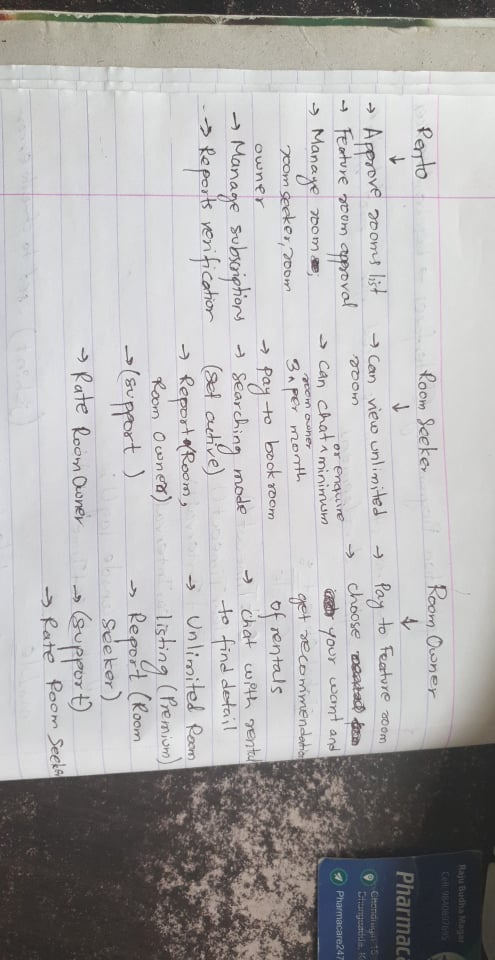 Rento
↓
→ Approve rooms list
→ Feature room approval
→ Manage room,
room seeker, room
owner
→ Manage subscriptions
→ Reports verification
Room Seeker
↓
→ Can view unlimited
room
→ Can chat or enquire minimum
3 room owner per month
→ pay to book room
→ Searching mode
(set active)
→ Report (Room,
Room Owner)
→ (support)
→ Rate Room Owner
Room Owner
↓
→ Pay to Feature room
→ choose
your want and
get recommendation
of rentals
→ chat with rental
to find detail
→ Unlimited Room
listing (Premium)
→ Report (Room
Seeker)
→ (support)
→ Rate Room Seeker
Raju Budha Magar
Cell: 9840897695
Pharmac
Pharmacare247